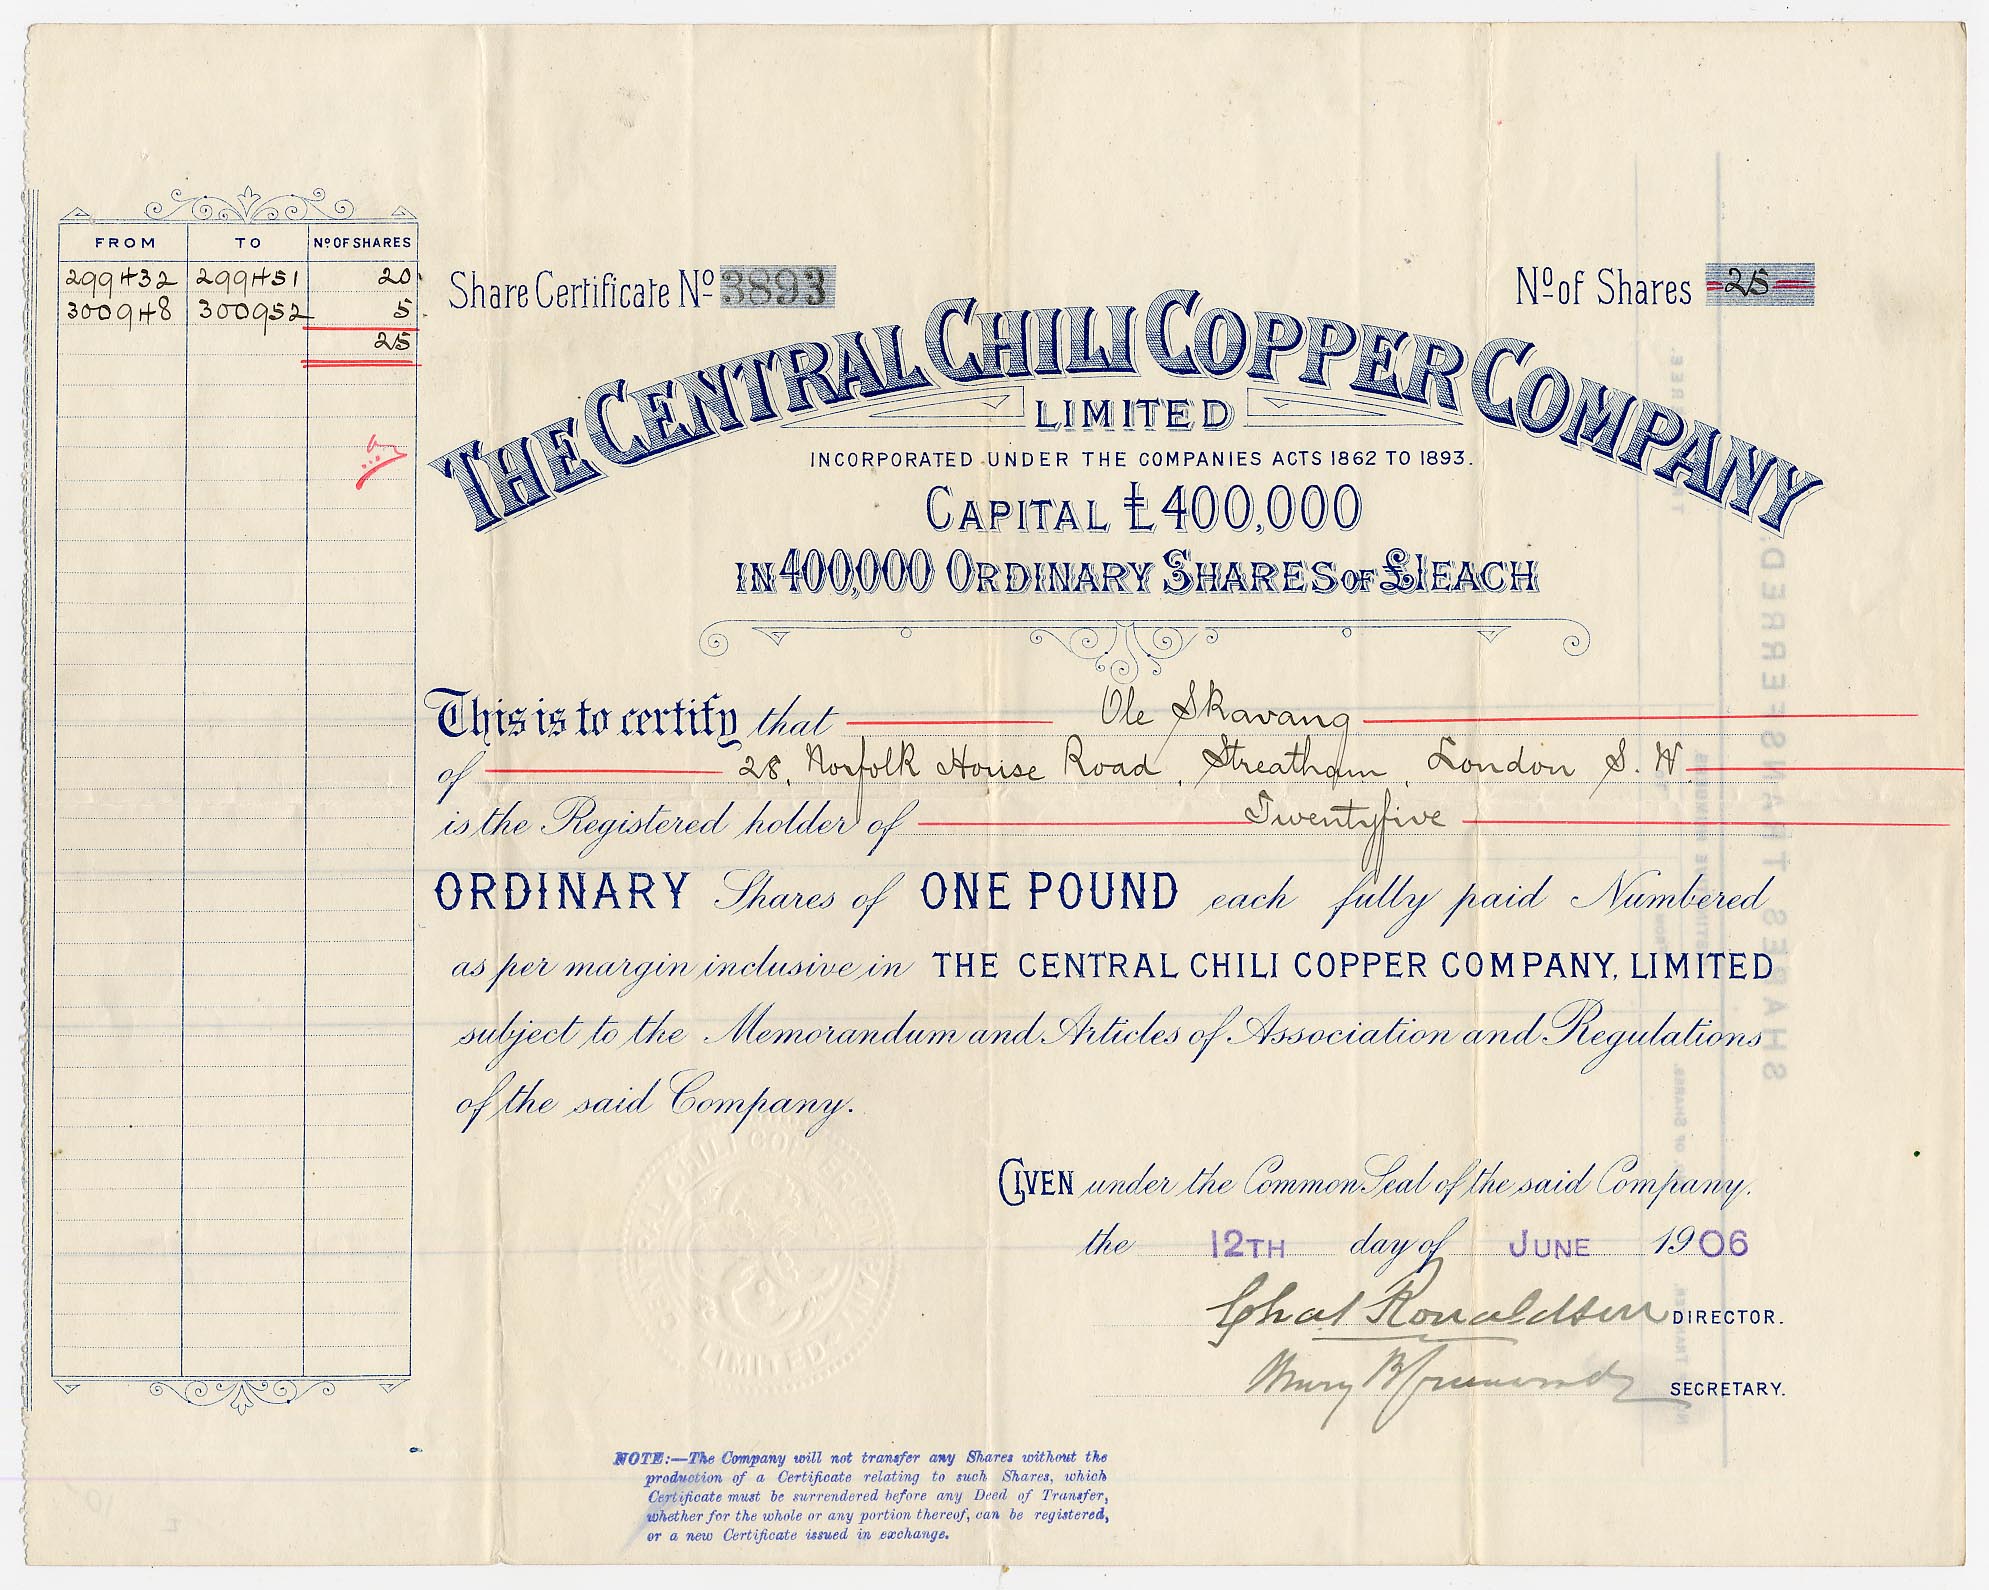 FROM TO Nº OF SHARES
299432 299451 20
300948 300952 5
25
Share Certificate Nº 3893
Nº of Shares 25
THE CENTRAL CHILI COPPER COMPANY
LIMITED
INCORPORATED UNDER THE COMPANIES ACTS 1862 TO 1893.
CAPITAL £400,000
IN 400,000 ORDINARY SHARES OF £1 EACH
This is to certify that Ole Skavang
of 28, Norfolk House Road, Streatham, London S. W.
is the Registered holder of Twentyfive
ORDINARY Shares of ONE POUND each fully paid Numbered
as per margin inclusive in THE CENTRAL CHILI COPPER COMPANY, LIMITED
subject to the Memorandum and Articles of Association and Regulations
of the said Company.
GIVEN under the Common Seal of the said Company.
the 12TH day of JUNE 1906
Chas Ronaldson DIRECTOR.
SECRETARY.
CENTRAL CHILI COPPER COMPANY
LIMITED
NOTE:—The Company will not transfer any Shares without the
production of a Certificate relating to such Shares, which
Certificate must be surrendered before any Deed of Transfer,
whether for the whole or any portion thereof, can be registered,
or a new Certificate issued in exchange.
SHARES TRANSFERRED.